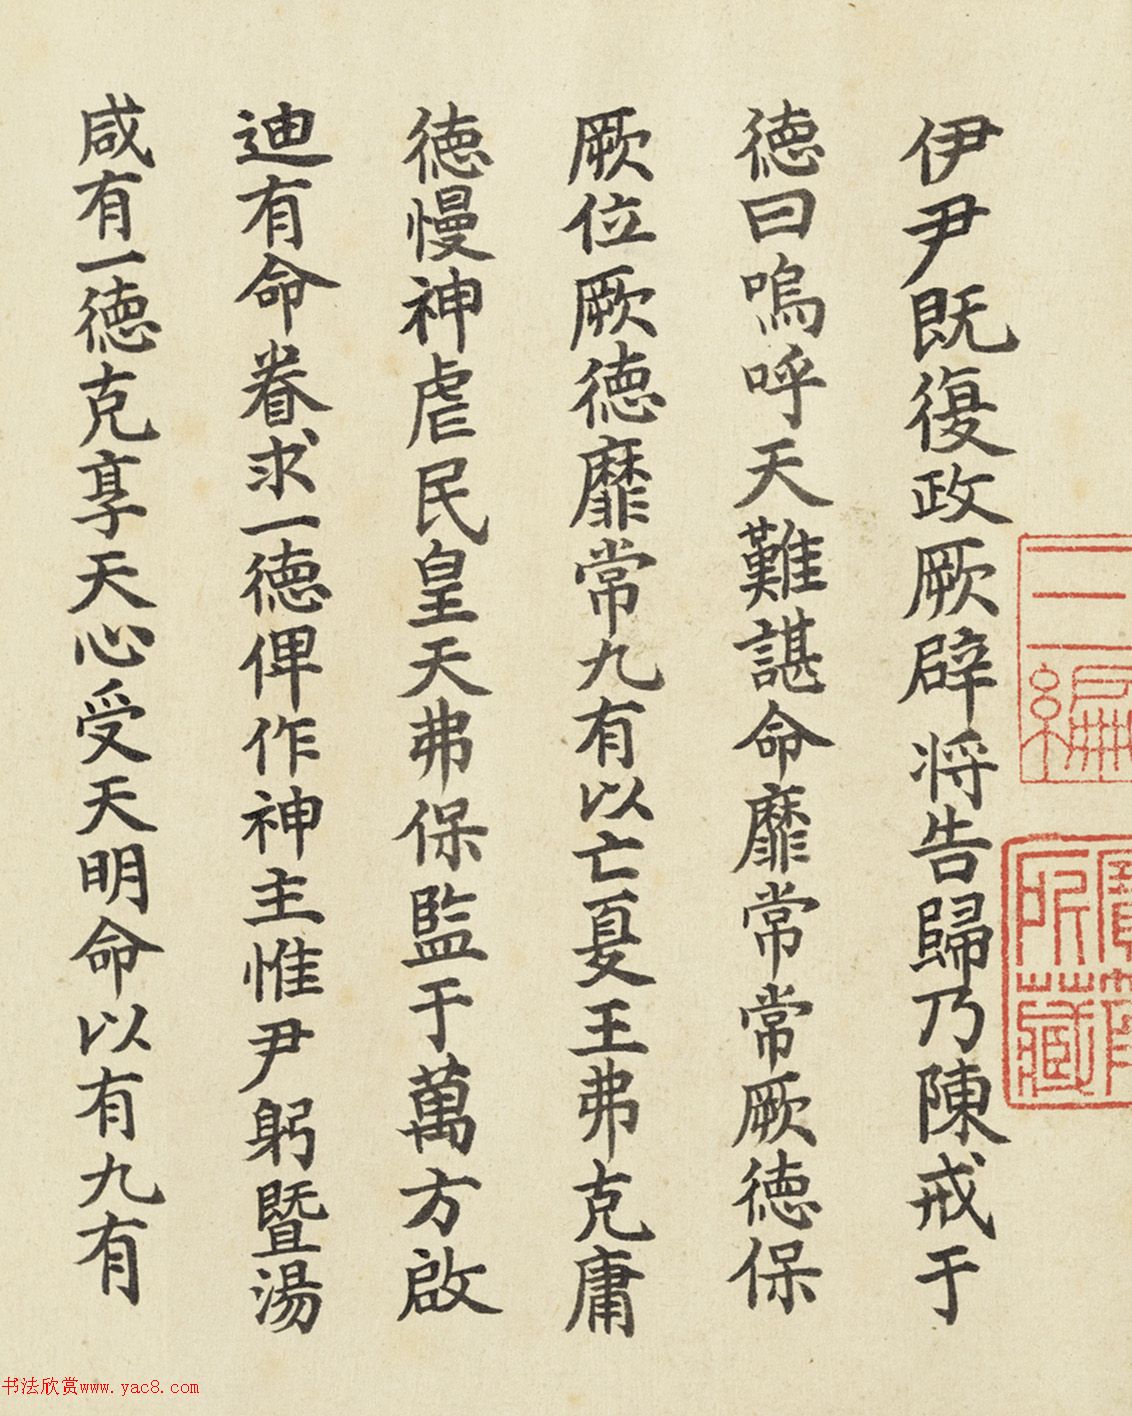 伊尹既復政厥辟将告歸乃陳戒于
徳曰嗚呼天難諶命靡常常厥徳保
厥位厥徳靡常九有以亡夏王弗克庸
徳慢神虐民皇天弗保監于萬方啟
迪有命眷求一徳俾作神主惟尹躬暨湯
咸有一徳克享天心受天明命以有九有
三編
所藏
书法欣赏www.yac8.com